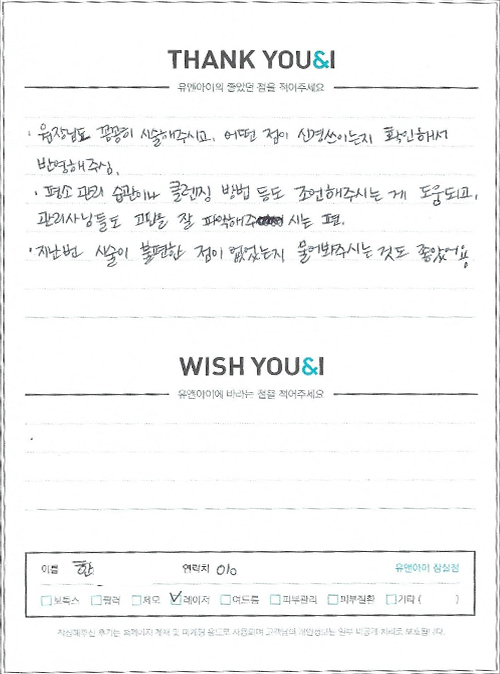 THANK YOU&I
유앤아이의 좋았던 점을 적어주세요
· 원장님도 꼼꼼히 시술해주시고, 어떤 점이 신경쓰이는지 확인해서
반영해주심.
· 평소 관리 습관이나 클렌징 방법 등도 조언해주시는 게 도움되고,
관리사님들도 고민을 잘 파악해주 시는 편.
· 지난번 시술이 불편한 점이 없었는지 물어봐주시는 것도 좋았어요
WISH YOU&I
유앤아이에 바라는 점을 적어주세요
이름 연락처 010 유앤아이 잠실점
보톡스 필러 제모 레이저 여드름 피부관리 피부질환 기타 ( )
작성해주신 후기는 홈페이지 게재 및 마케팅 용도로 사용되며 고객님의 개인정보는 일부 비공개 처리로 보호됩니다.